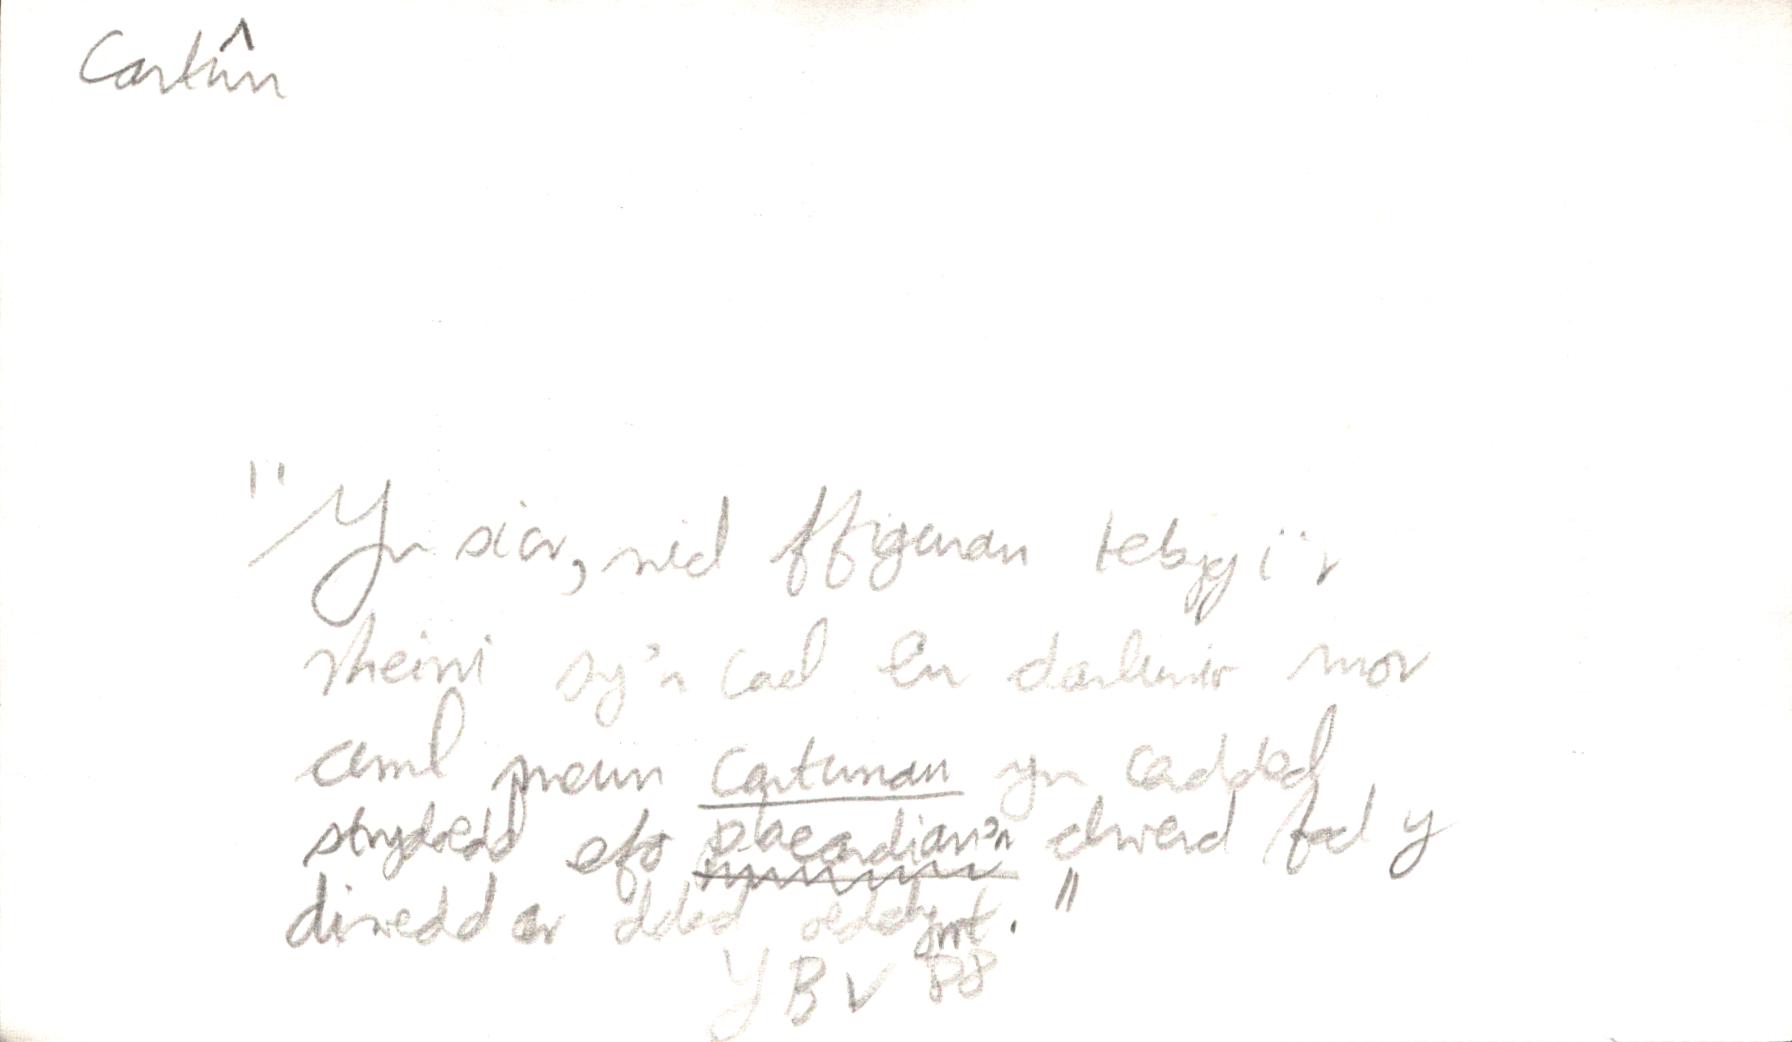 Cartŵn
"Yn siŵr, nid ffigurau tebyg i'r
rheini sy'n cael eu darlunio mor
aml mewn cartwnau yn cerdded
strydoedd efo placardiau'n dweud fod y
diwedd ar ddod oeddynt."
Y B V 88